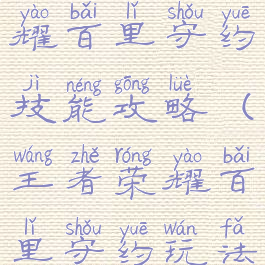 yào bǎi lǐ shǒu yuē
耀百里守约
jì néng gōng lüè
技能攻略（
wáng zhě róng yào bǎi
王者荣耀百
lǐ shǒu yuē wán fǎ
里守约玩法